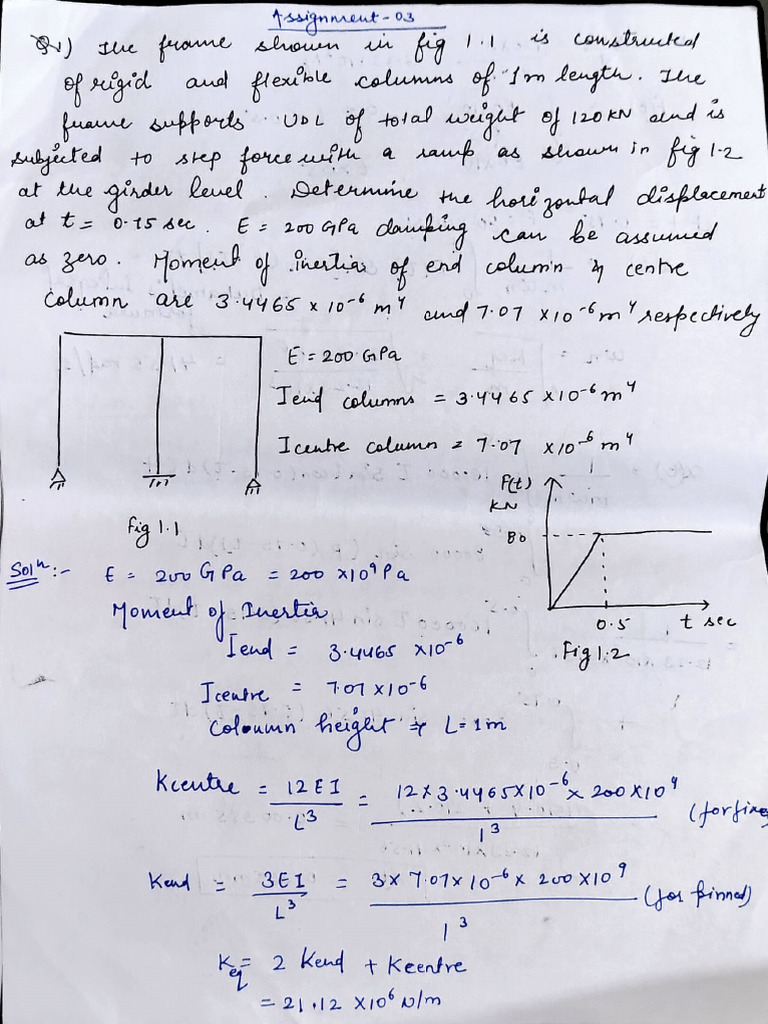 Assignment-03
Q1) The frame shown in fig 1.1 is constructed
of rigid and flexible columns of 1m length. The
frame supports UDL of total weight of 120KN and is
subjected to step force with a ramp as shown in fig 1.2
at the girder level. Determine the horizontal displacement
at t = 0.75 sec. E = 200 GPa damping can be assumed
as zero. Moment of inertia of end column & centre
column are 3.4465 x 10⁻⁶ m⁴ and 7.07 x10⁻⁶ m⁴ respectively
E = 200 GPa
I end columns = 3.4465 x10⁻⁶ m⁴
I centre column = 7.07 x10⁻⁶ m⁴
F(t)
KN
80
0.5 t sec
Fig 1.1
Fig 1.2
Solⁿ:- E = 200 GPa = 200 x10⁹ Pa
Moment of Inertia
Iend = 3.4465 x10⁻⁶
Icentre = 7.07 x10⁻⁶
Coloumn height ⇒ L = 1m
Kcentre = 12EI / L³ = 12 x 3.4465 x10⁻⁶ x 200 x10⁹ / 1³ (for fixed
Kend = 3EI / L³ = 3 x 7.07 x 10⁻⁶ x 200 x10⁹ / 1³ (for pinned)
Keq = 2 Kend + Kcentre
= 21.12 x10⁶ N/m